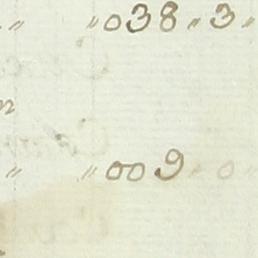 " "038 " 3 "
" "009 " 0 "